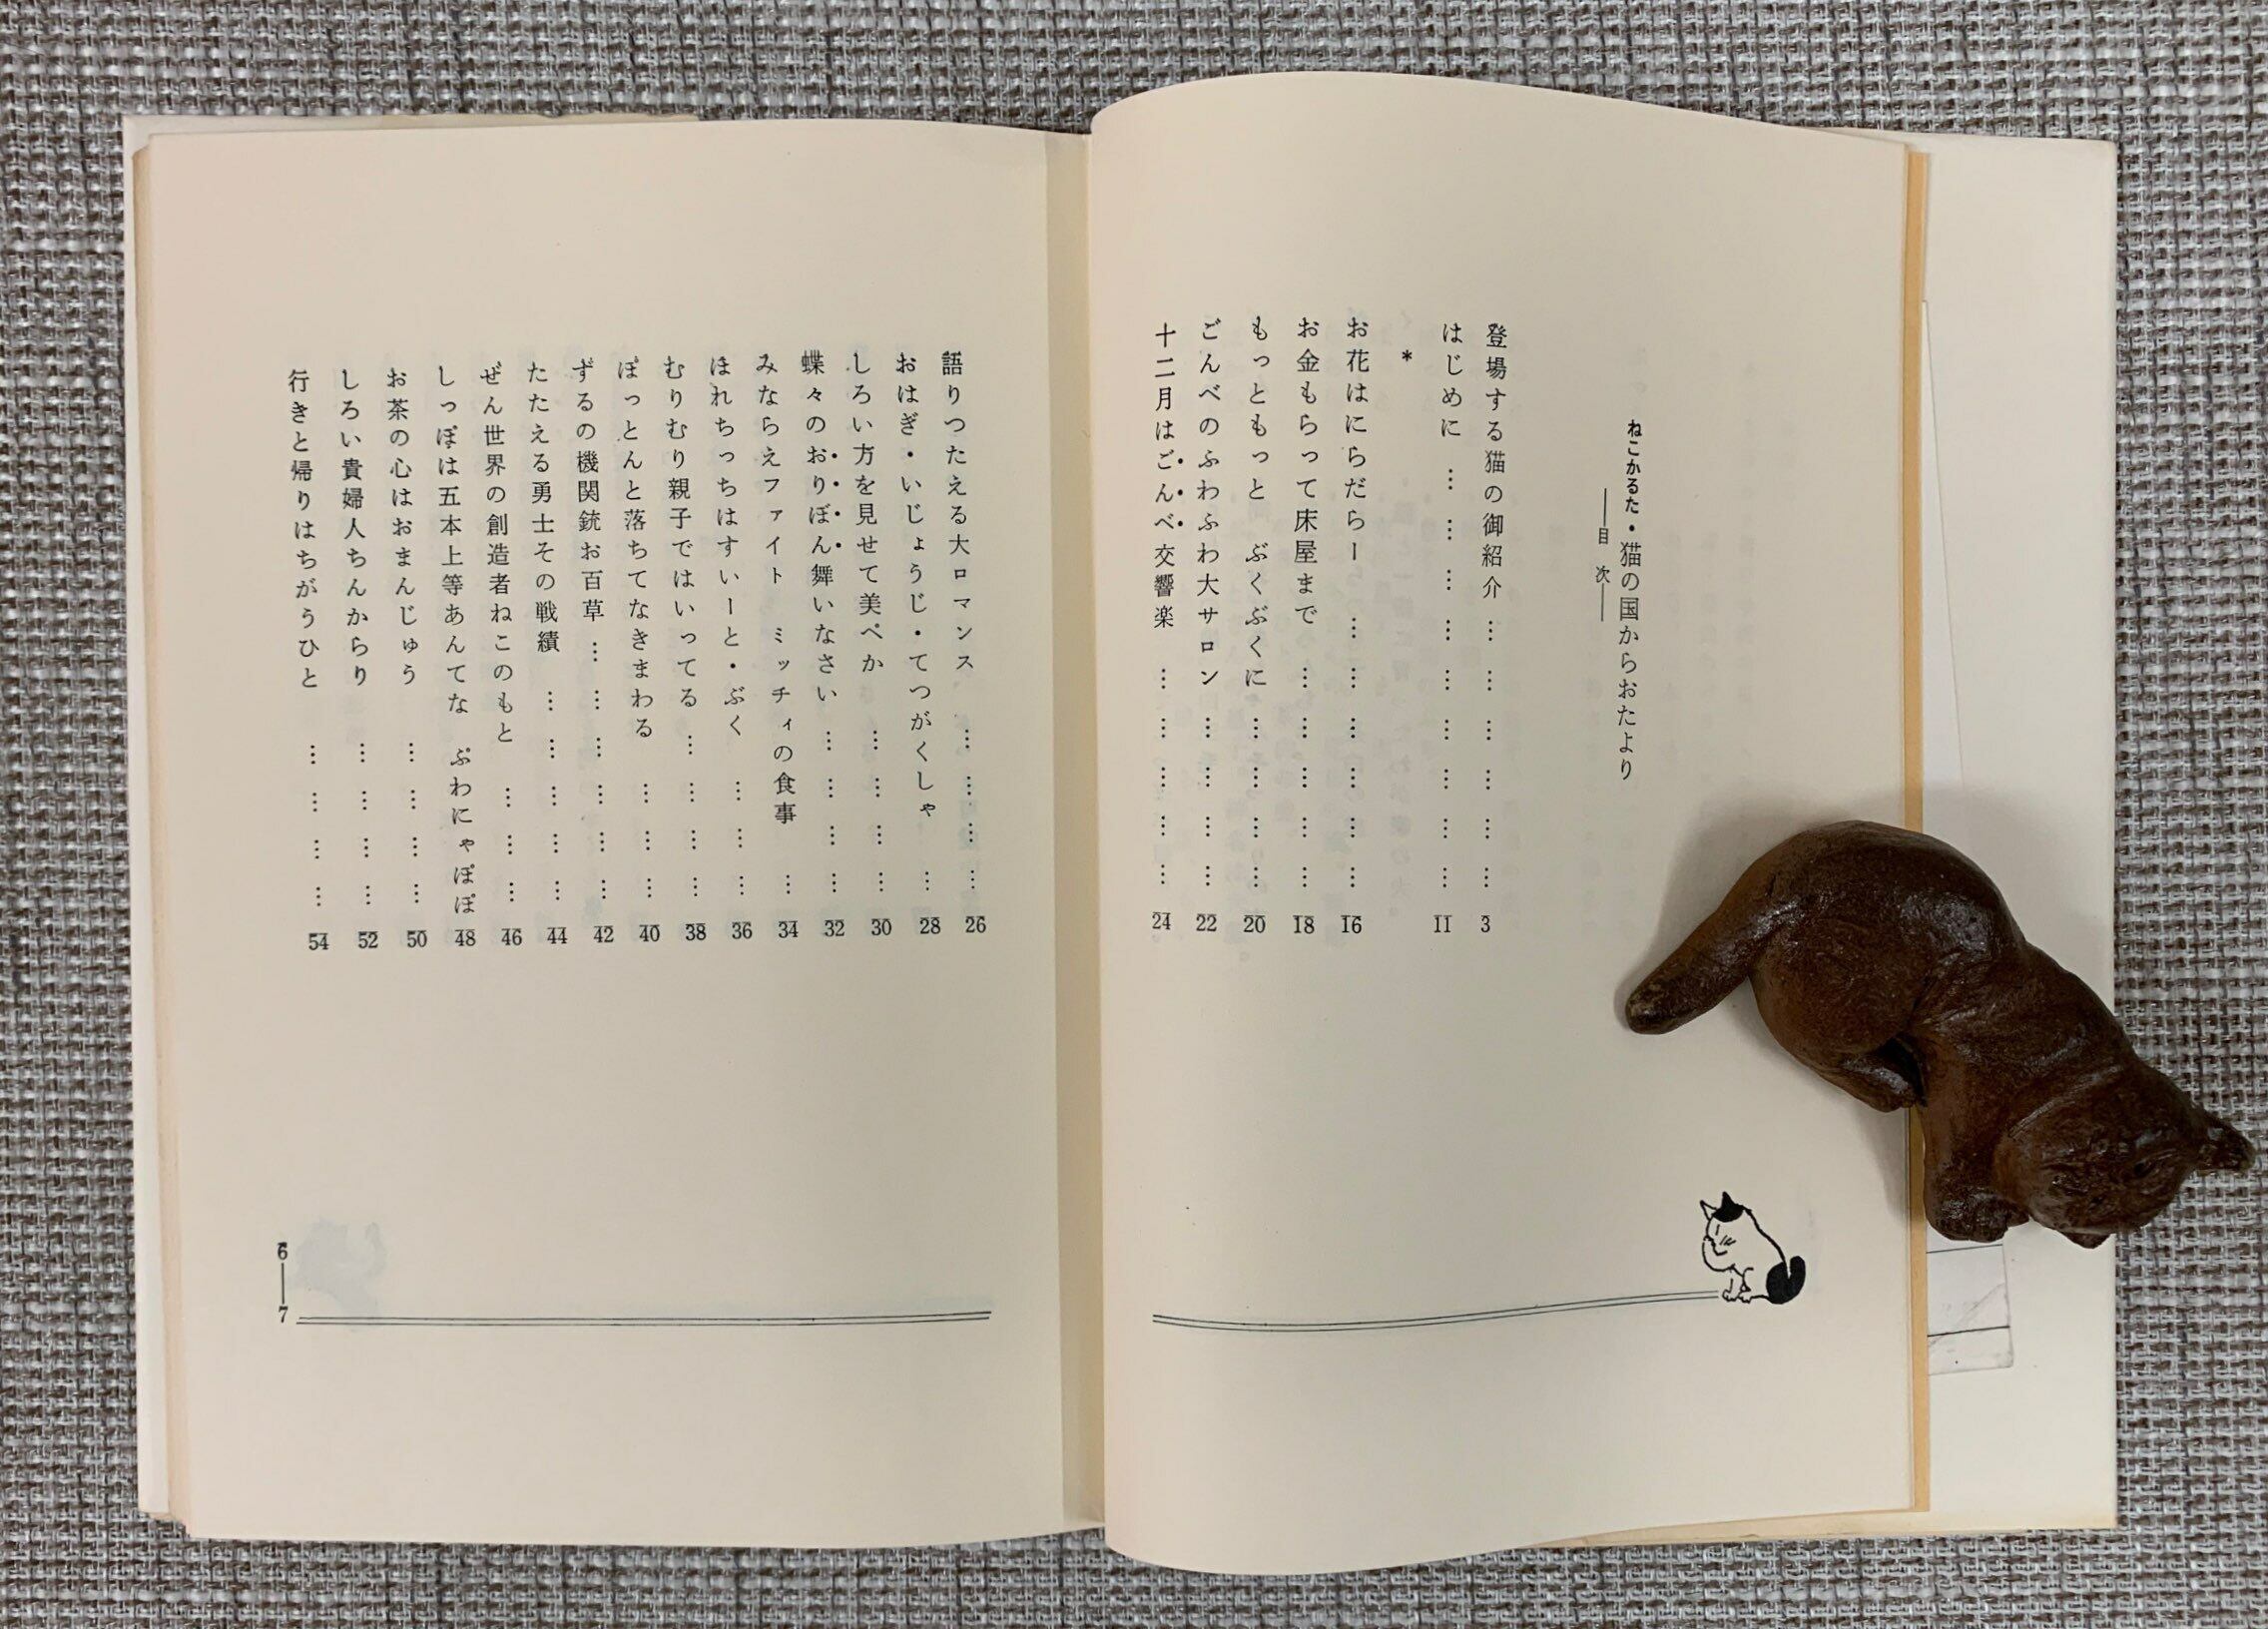 ねこかるた・猫の国からおたより
――目 次――
登場する猫の御紹介 … … … … … … 3
はじめに … … … … … … … … … 11
*
お花はにらだらー … … … … … … 16
お金もらって床屋まで … … … … … 18
もっともっと ぶくぶくに … … … … 20
ごんべのふわふわ大サロン … … … … 22
十二月はごんべ交響楽 … … … … … 24
語りつたえる大ロマンス … … … … 26
おはぎ・いじょうじ・てつがくしゃ … 28
しろい方を見せて美ぺか … … … … 30
蝶々のおりぼん舞いなさい … … … … 32
みならえファイト ミッチィの食事 … 34
ほれちっちはすいーと・ぶく … … … 36
むりむり親子ではいってる … … … … 38
ぽっとんと落ちてなきまわる … … … 40
ずるの機関銃お百草 … … … … … … 42
たたえる勇士その戦績 … … … … … 44
ぜん世界の創造者ねこのもと … … … 46
しっぽは五本上等あんてな ぷわにゃぽぽ 48
お茶の心はおまんじゅう … … … … 50
しろい貴婦人ちんからり … … … … 52
行きと帰りはちがうひと … … … … 54
6―7